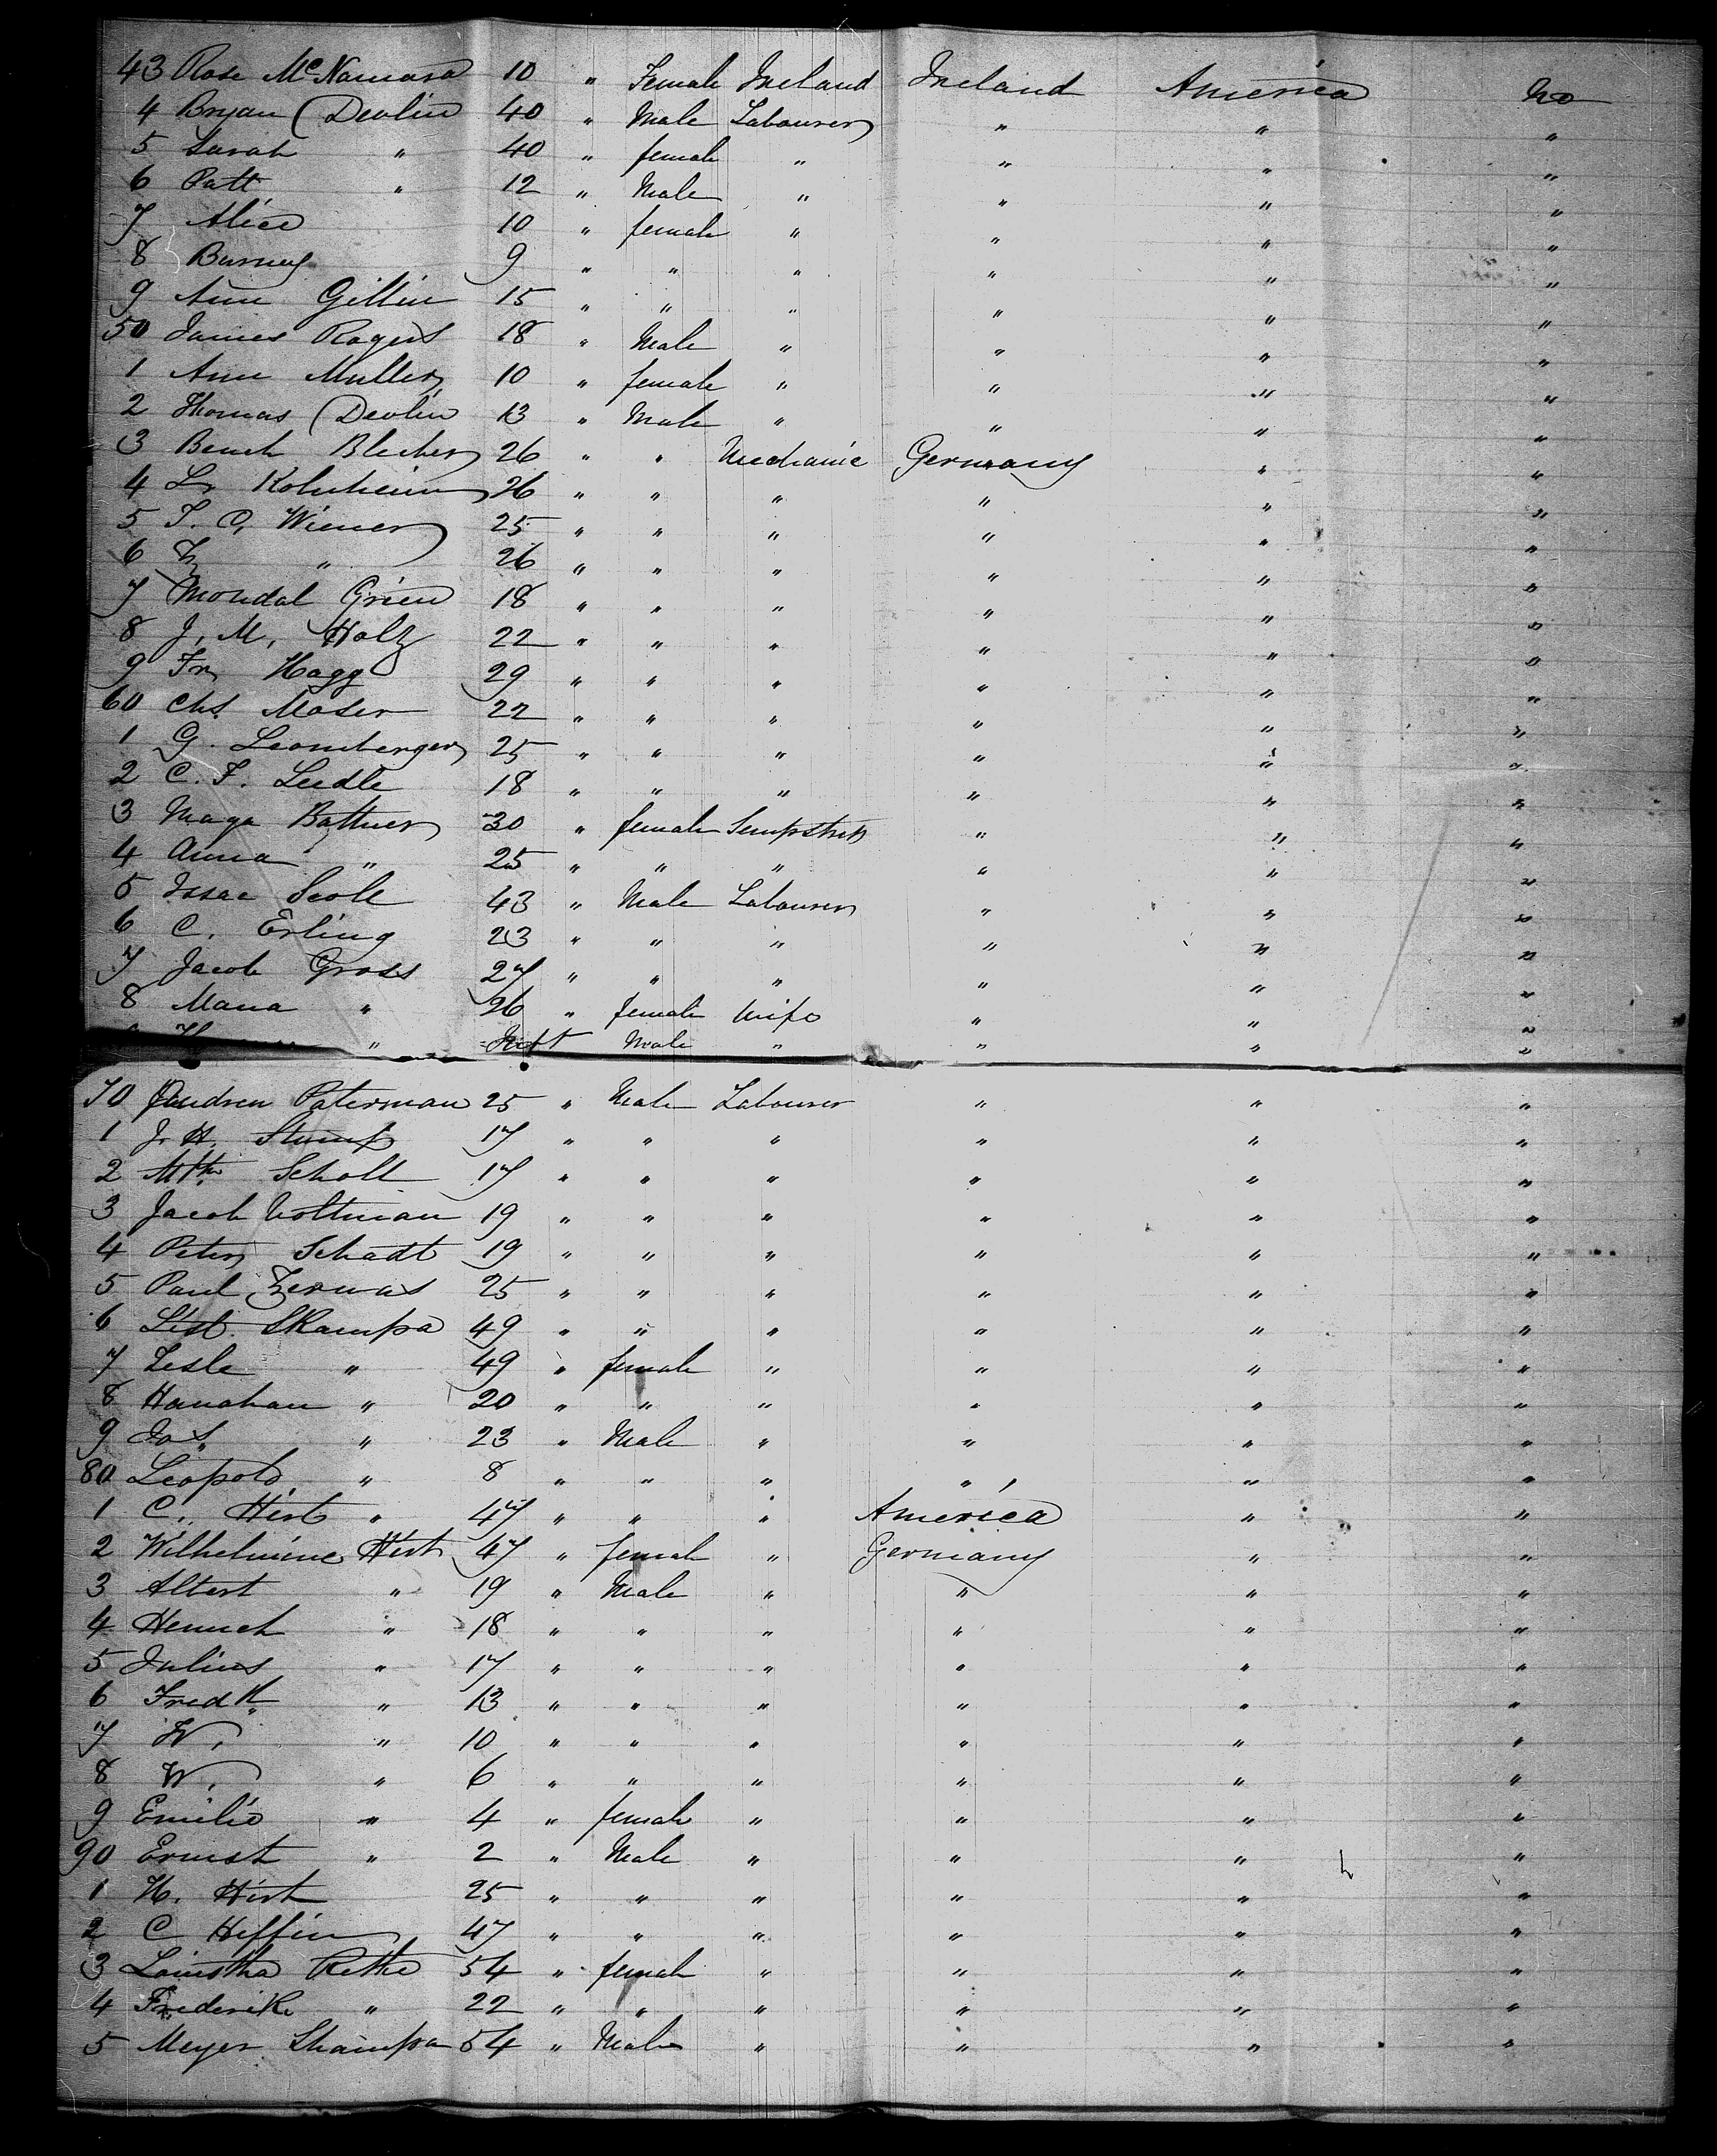 43 Rose McNamara 10 " Female Ireland Ireland America no
4 Bryan Devlin 40 " Male Labourer " " "
5 Sarah " 40 " female " " " "
6 Patt " 12 " Male " " " "
7 Alice 10 " female " " " "
8 Barney 9 " " " " " "
9 Ann Gillin 15 " " " " " "
50 James Rogers 18 " Male " " " "
1 Ann Muller 10 " female " " " "
2 Thomas Devlin 13 " Male " " " "
3 Blecher 26 " " Mechanic Germany " "
4 26 " " " " " "
5 Wiener 25 " " " " " "
6 " 26 " " " " " "
7 Mondal Grien 18 " " " " " "
8 J. M. Holz 22 " " " " " "
9 Fr Hagg 29 " " " " " "
60 Chs Moser 22 " " " " " "
1 G. Leomberger 25 " " " " " "
2 C. F. Leidle 18 " " " " " "
3 Maga Battner 30 " female Sempstress " " "
4 Anna " 25 " " " " " "
5 Issac 43 " Male Labourer " " "
6 C. Erling 23 " " " " " "
7 Jacob Gross 27 " " " " " "
8 Maria " 26 " female Wife " " "
" Inft Male " " " "
70 Paterman 25 " Male Labourer " " "
1 J. H. Stumpf 17 " " " " " "
2 Scholl 17 " " " " " "
3 Jacob Voltman 19 " " " " " "
4 Peter Schadt 19 " " " " " "
5 Paul Zerwas 25 " " " " " "
6 Skampa 49 " " " " " "
7 Lesle " 49 " female " " " "
8 Hanahan " 20 " " " " " "
9 Jos " 23 " Male " " " "
80 Leopold " 8 " " " " " "
1 C. Hirt " 47 " " " America " "
2 Wilhelmine Hirt 47 " female " Germany " "
3 Albert " 19 " Male " " " "
4 Henrich " 18 " " " " " "
5 Julius " 17 " " " " " "
6 Fredk " 13 " " " " " "
7 W. " 10 " " " " " "
8 W. " 6 " " " " " "
9 Emilie " 4 " female " " " "
90 Ernst " 2 " Male " " " "
1 H. Hirt 25 " " " " " "
2 C Hiffin 47 " " " " " "
3 Rethe 54 " female " " " "
4 Frederike " 22 " " " " " "
5 Meyer Skampa 54 " Male " " " "